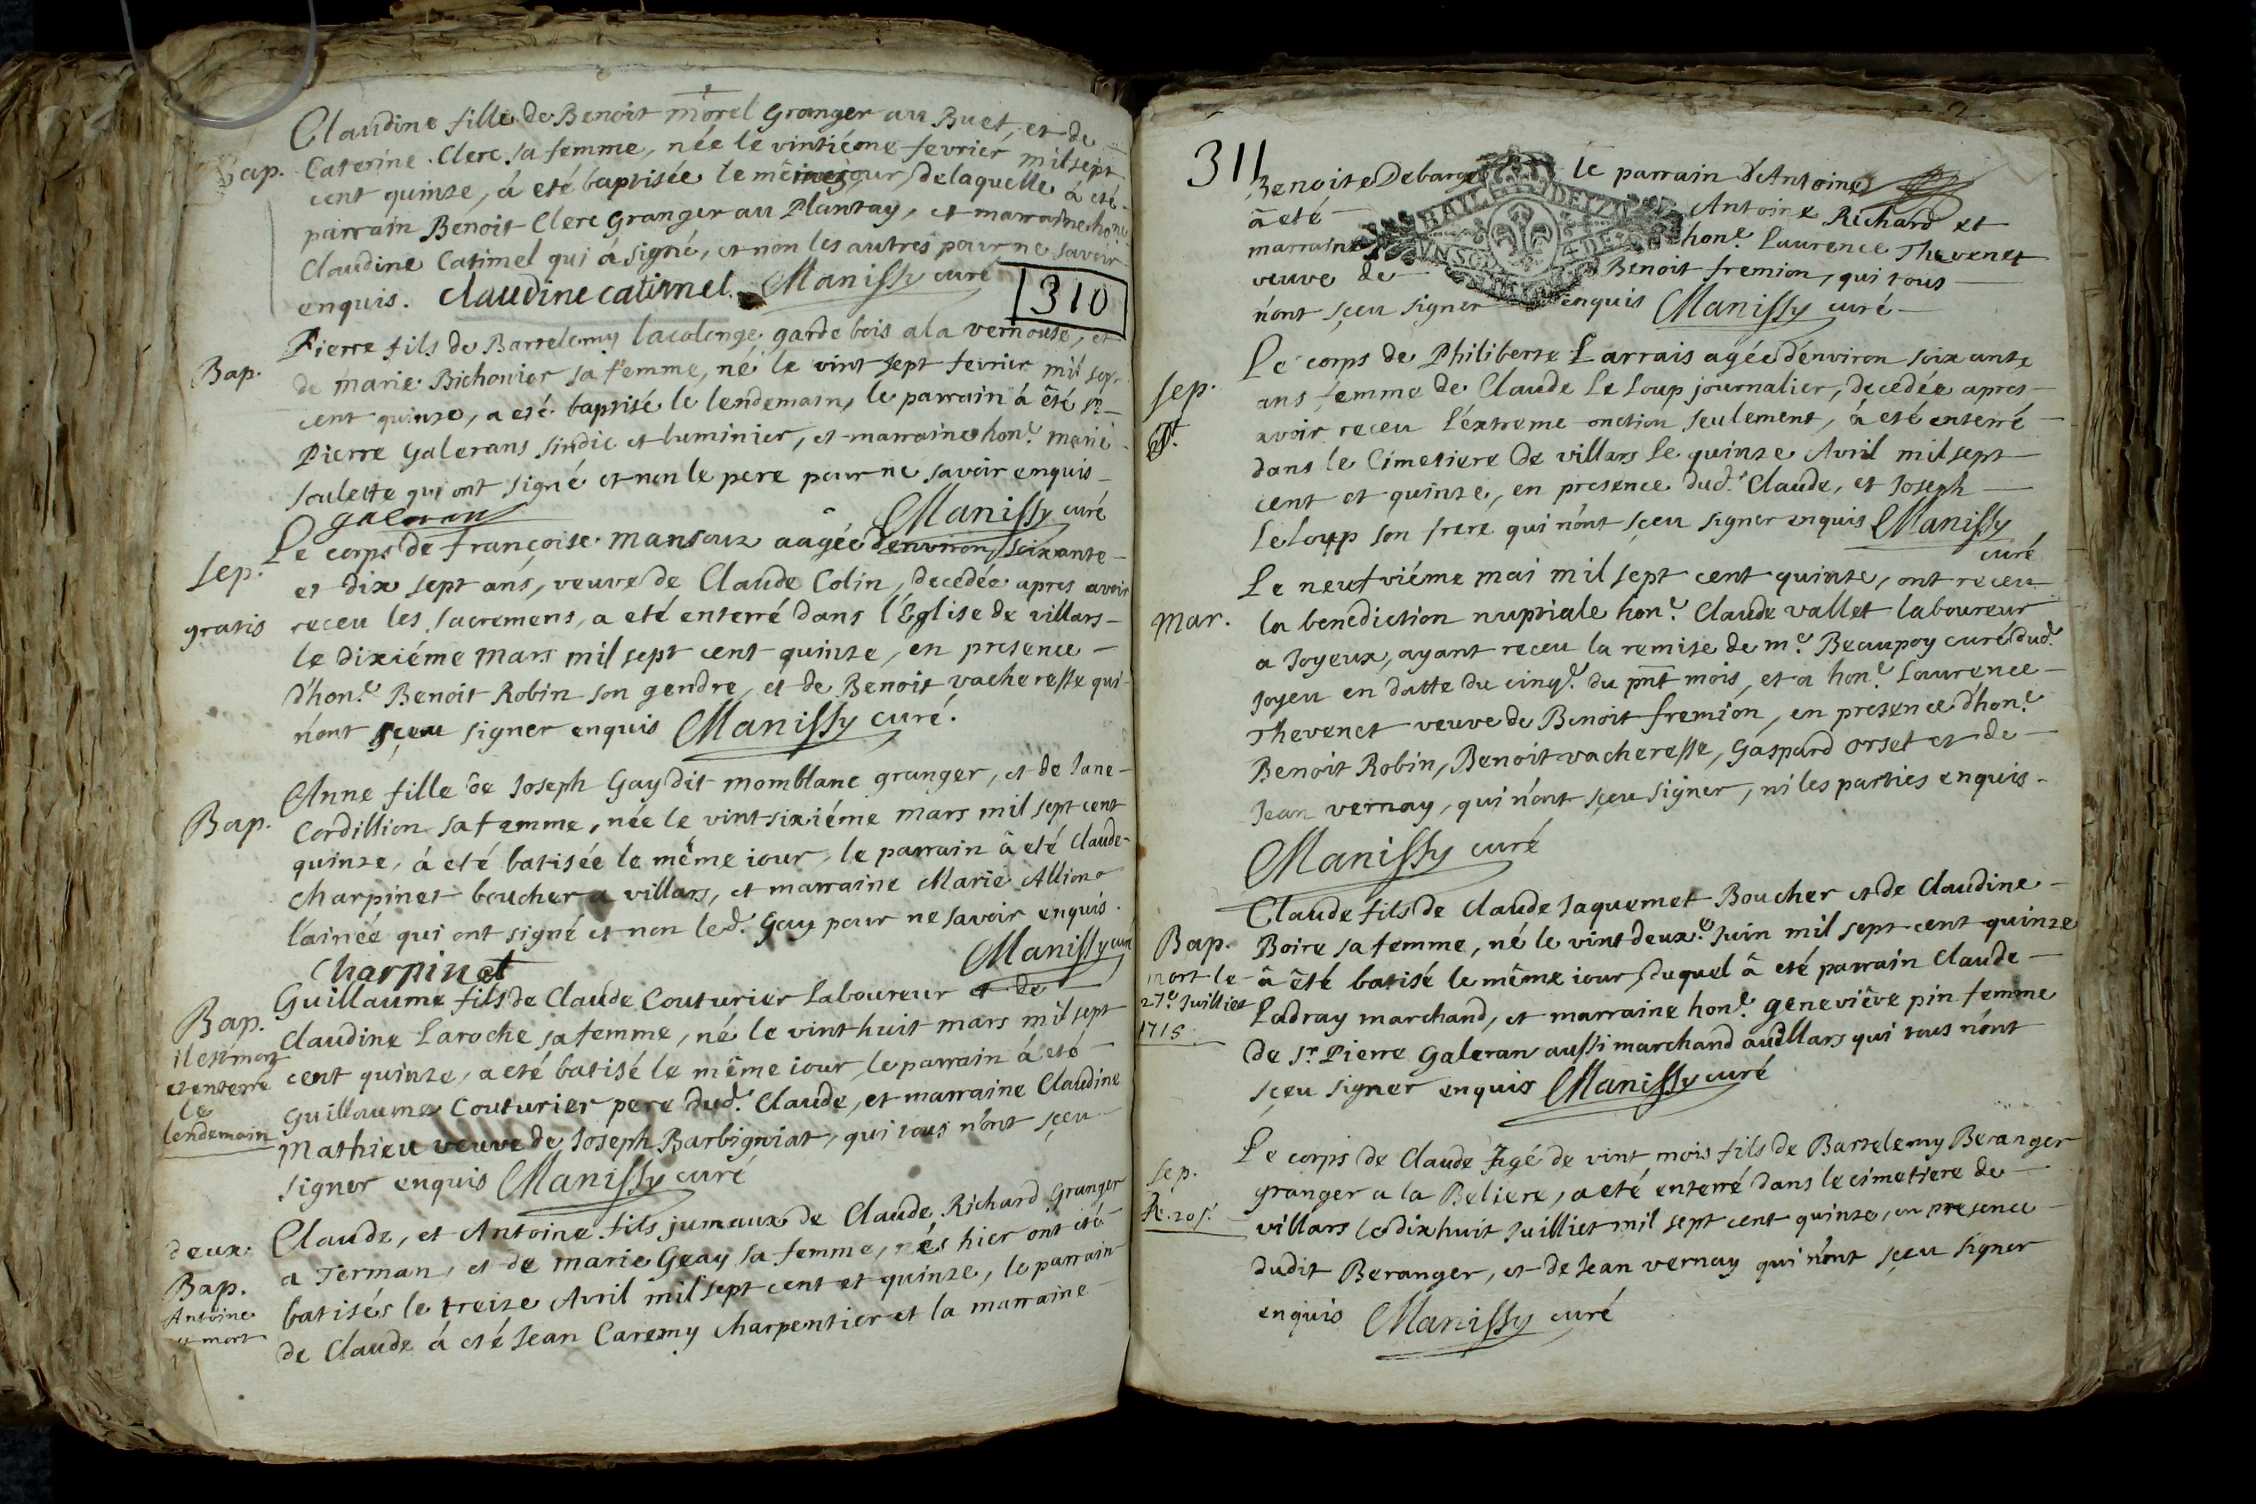 Claudine fille de Benoit morel Granger au Buet, et de
Bap. Caterine Clerc sa femme, née le vintiéme fevrier mil sept
cent quinze, á eté baptisée le même jour, de laquelle á eté
parrain Benoit Clerc Granger au Plantay, et marraine hon.e
Claudine Catimel qui á signé, et non les autres pour ne savoir
enquis. Claudine catimel. Manissy curé
310
Pierre fils de Bartelemy lacolonge garde bois a la vernouse, et
Bap. de marie Bichonier sa femme, né le vint sept fevrier mil sept
cent quinze, a eté baptisé le lendemain, le parrain á êté sr
Pierre Galerans sindic et luminier, et marraine hon.e marie
qui ont signé et non le pere pour ne savoir enquis
galeran Manissy curé
Sep. Le corps de françoise mansoux aâgée d'environ soixante
et dix sept ans, veuve de Claude Colin, decedée apres avoir
gratis receu les sacremens, a eté enterré dans l'Eglise de villars
le dixiéme mars mil sept cent quinze, en presence
d'hon.e Benoit Robin son gendre, et de Benoit vacheresse qui
n'ont sçeu signer enquis Manissy curé.
Anne fille de Joseph Gay dit momblanc granger, et de Jane
Bap. Cordillion sa femme, née le vint sixiéme mars mil sept cent
quinze, á eté batisée le même iour, le parrain â eté Claude
charpinet boucher a villars, et marraine Marie Allion
l'ainée qui ont signé et non led. Gay pour ne savoir enquis.
Charpinet Manissy curé
Guillaume fils de Claude Couturier Laboureur et de
Bap. Claudine Laroche sa femme, né le vint huit mars mil sept
il est mort et enterré le lendemain
cent quinze, a eté batisé le même iour, le parrain á eté
Guillaume Couturier pere dud. Claude, et marraine Claudine
Mathieu veuve de Joseph Barbigniat, qui tous n'ont sçeu
signer enquis Manissy curé
deux Bap. Claude, et Antoine fils jumaux de Claude Richard Granger
a Terman, et de marie Geay sa femme, nés hier ont été
Antoine mort
batisés le treize Avril mil sept cent et quinze, le parrain
de Claude á eté Jean Caremy charpentier et la marraine
311
Benoite Debarge le parrain d'Antoine
â eté Antoine Richard et
marraine hon.e Laurence Thevenet
veuve de Benoit fremion, qui tous
n'ont sçeu signer enquis Manissy curé
Le corps de Philiberte Larrais agée d'environ soixante
Sep. ans femme de Claude Le Loup journalier, decedée apres
avoir receu l'éxtreme onction seulement, á eté enterré
dans le Cimetiere de villars le quinze Avril mil sept
cent et quinze, en presence dud. Claude, et Joseph
Le Loup son frere qui n'ont sçeu signer enquis Manissy
curé
Le neufviéme mai mil sept cent quinze, ont receu
Mar. la benediction nuptiale hon.e Claude vallet laboureur
a Joyeux, ayant receu la remise de m.e Beaupoy curé dud.
Joyeu en datte du cinq.e du pnt mois, et a hon.e Laurence
Thevenet veuve de Benoit fremion, en presence d'hon.e
Benoit Robin, Benoit vacheresse, Gaspard orset et de
Jean vernay, qui n'ont sçeu signer, ni les parties enquis.
Manissy curé
Claude fils de Claude Jaquemet Boucher et de Claudine
Bap. Boire sa femme, né le vint deux.e Juin mil sept cent quinze
mort le 27.e Juilliet 1715
â êté batisé le même iour, duquel â eté parrain Claude
Ladray marchand, et marraine hon.e geneviève pin femme
de sr. Pierre Galeran aussi marchand audllars qui tous n'ont
sçeu signer enquis Manissy curé
Sep. Le corps de Claude Agé de vint mois fils de Bartelemy Beranger
granger a la Beliere, a eté enterré dans le cimetiere de
villars le dix huit Juilliet mil sept cent quinze, en presence
dudit Beranger, et de Jean vernay qui n'ont sçeu signer
enquis Manissy curé